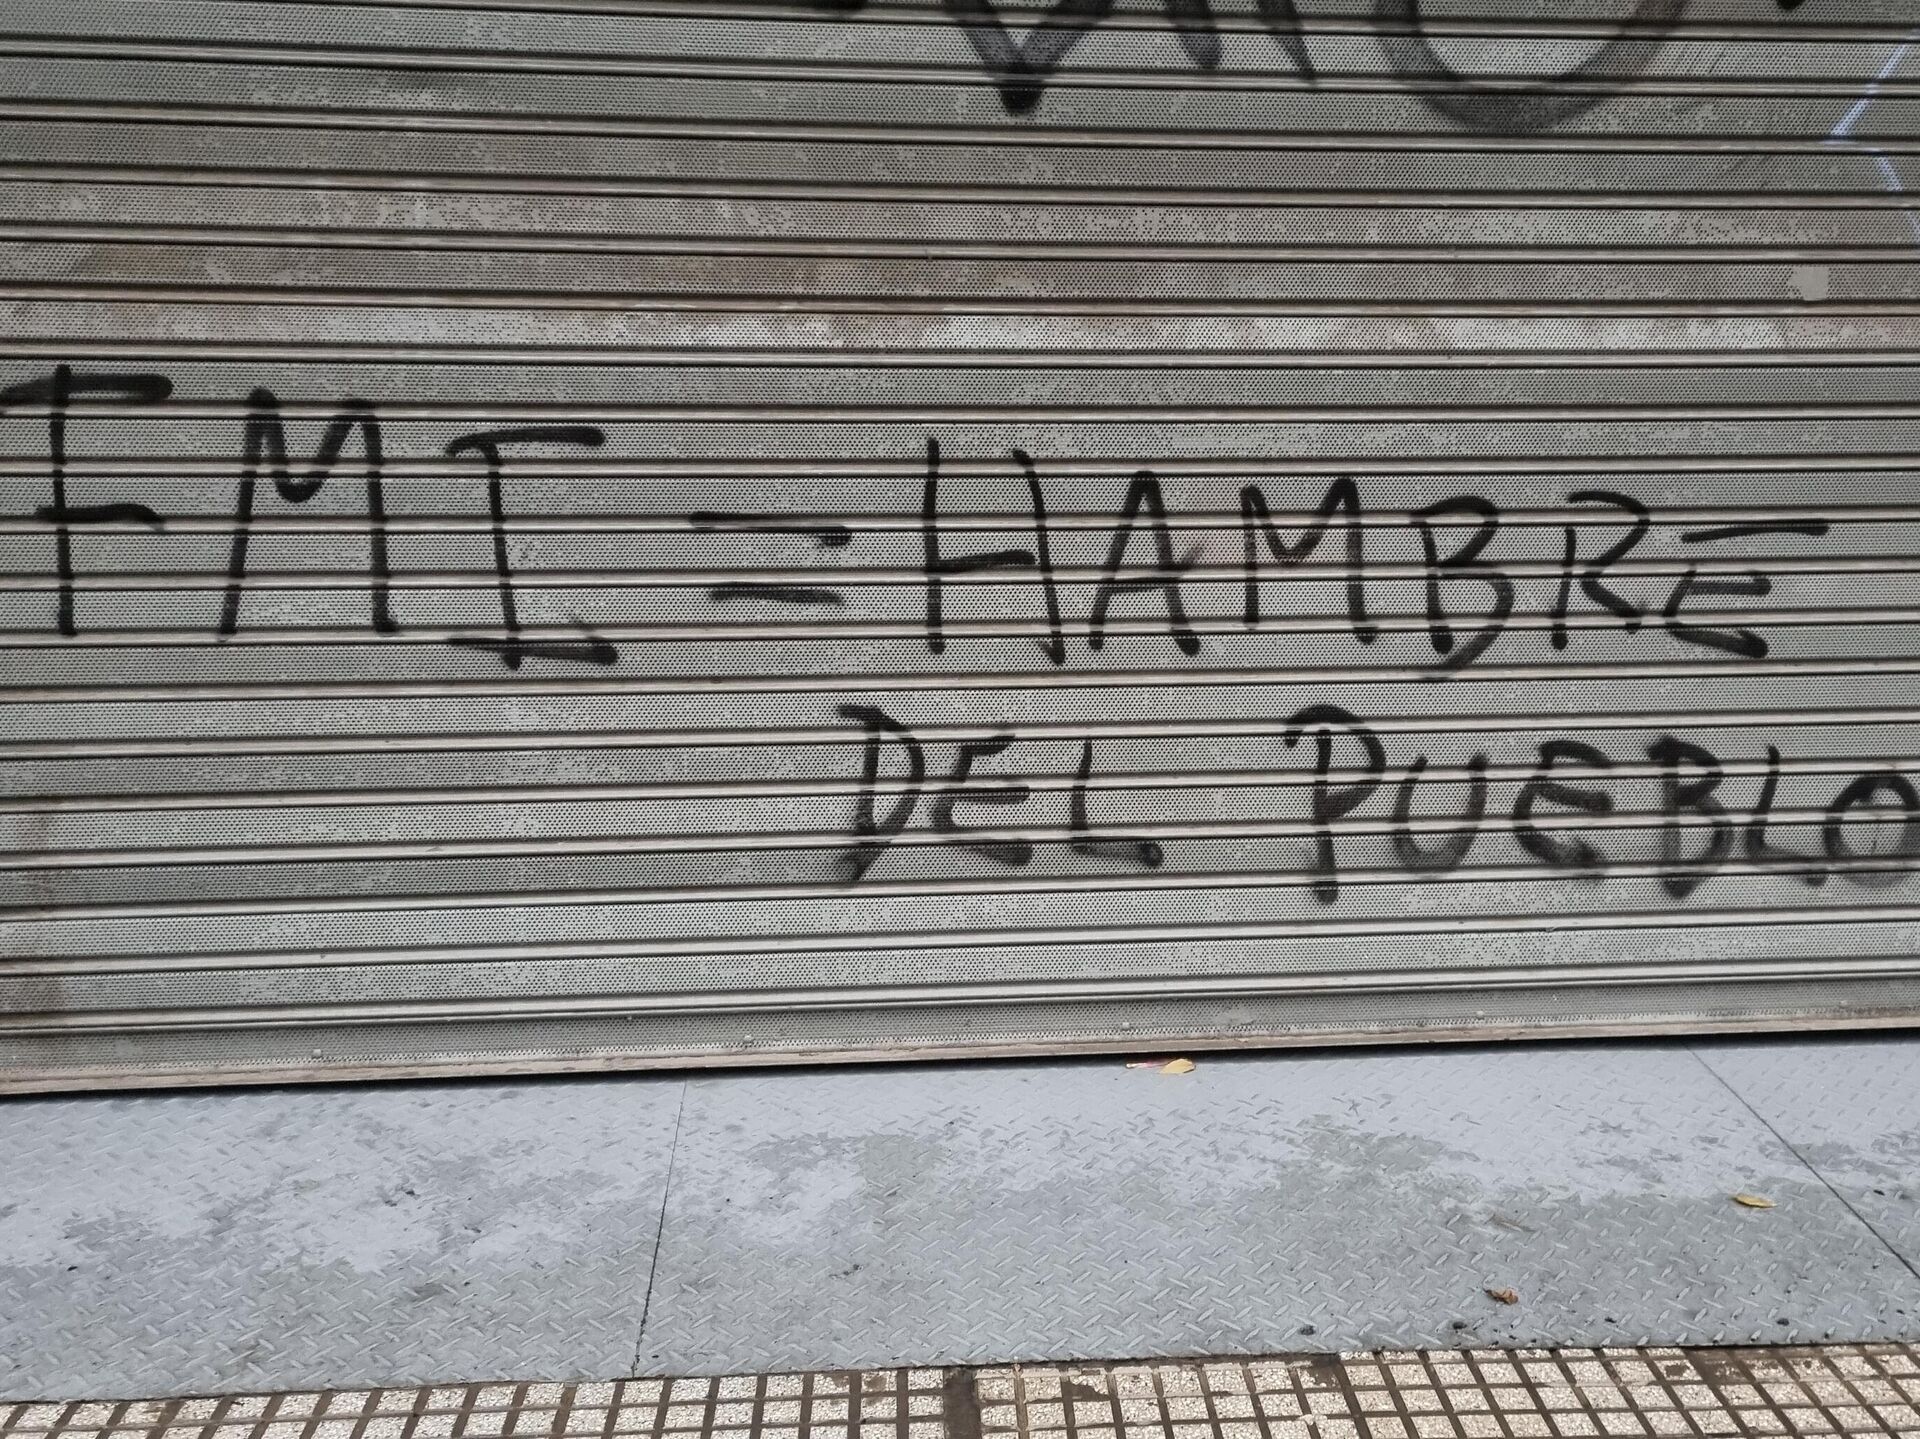 FMI = HAMBRE
DEL PUEBLO